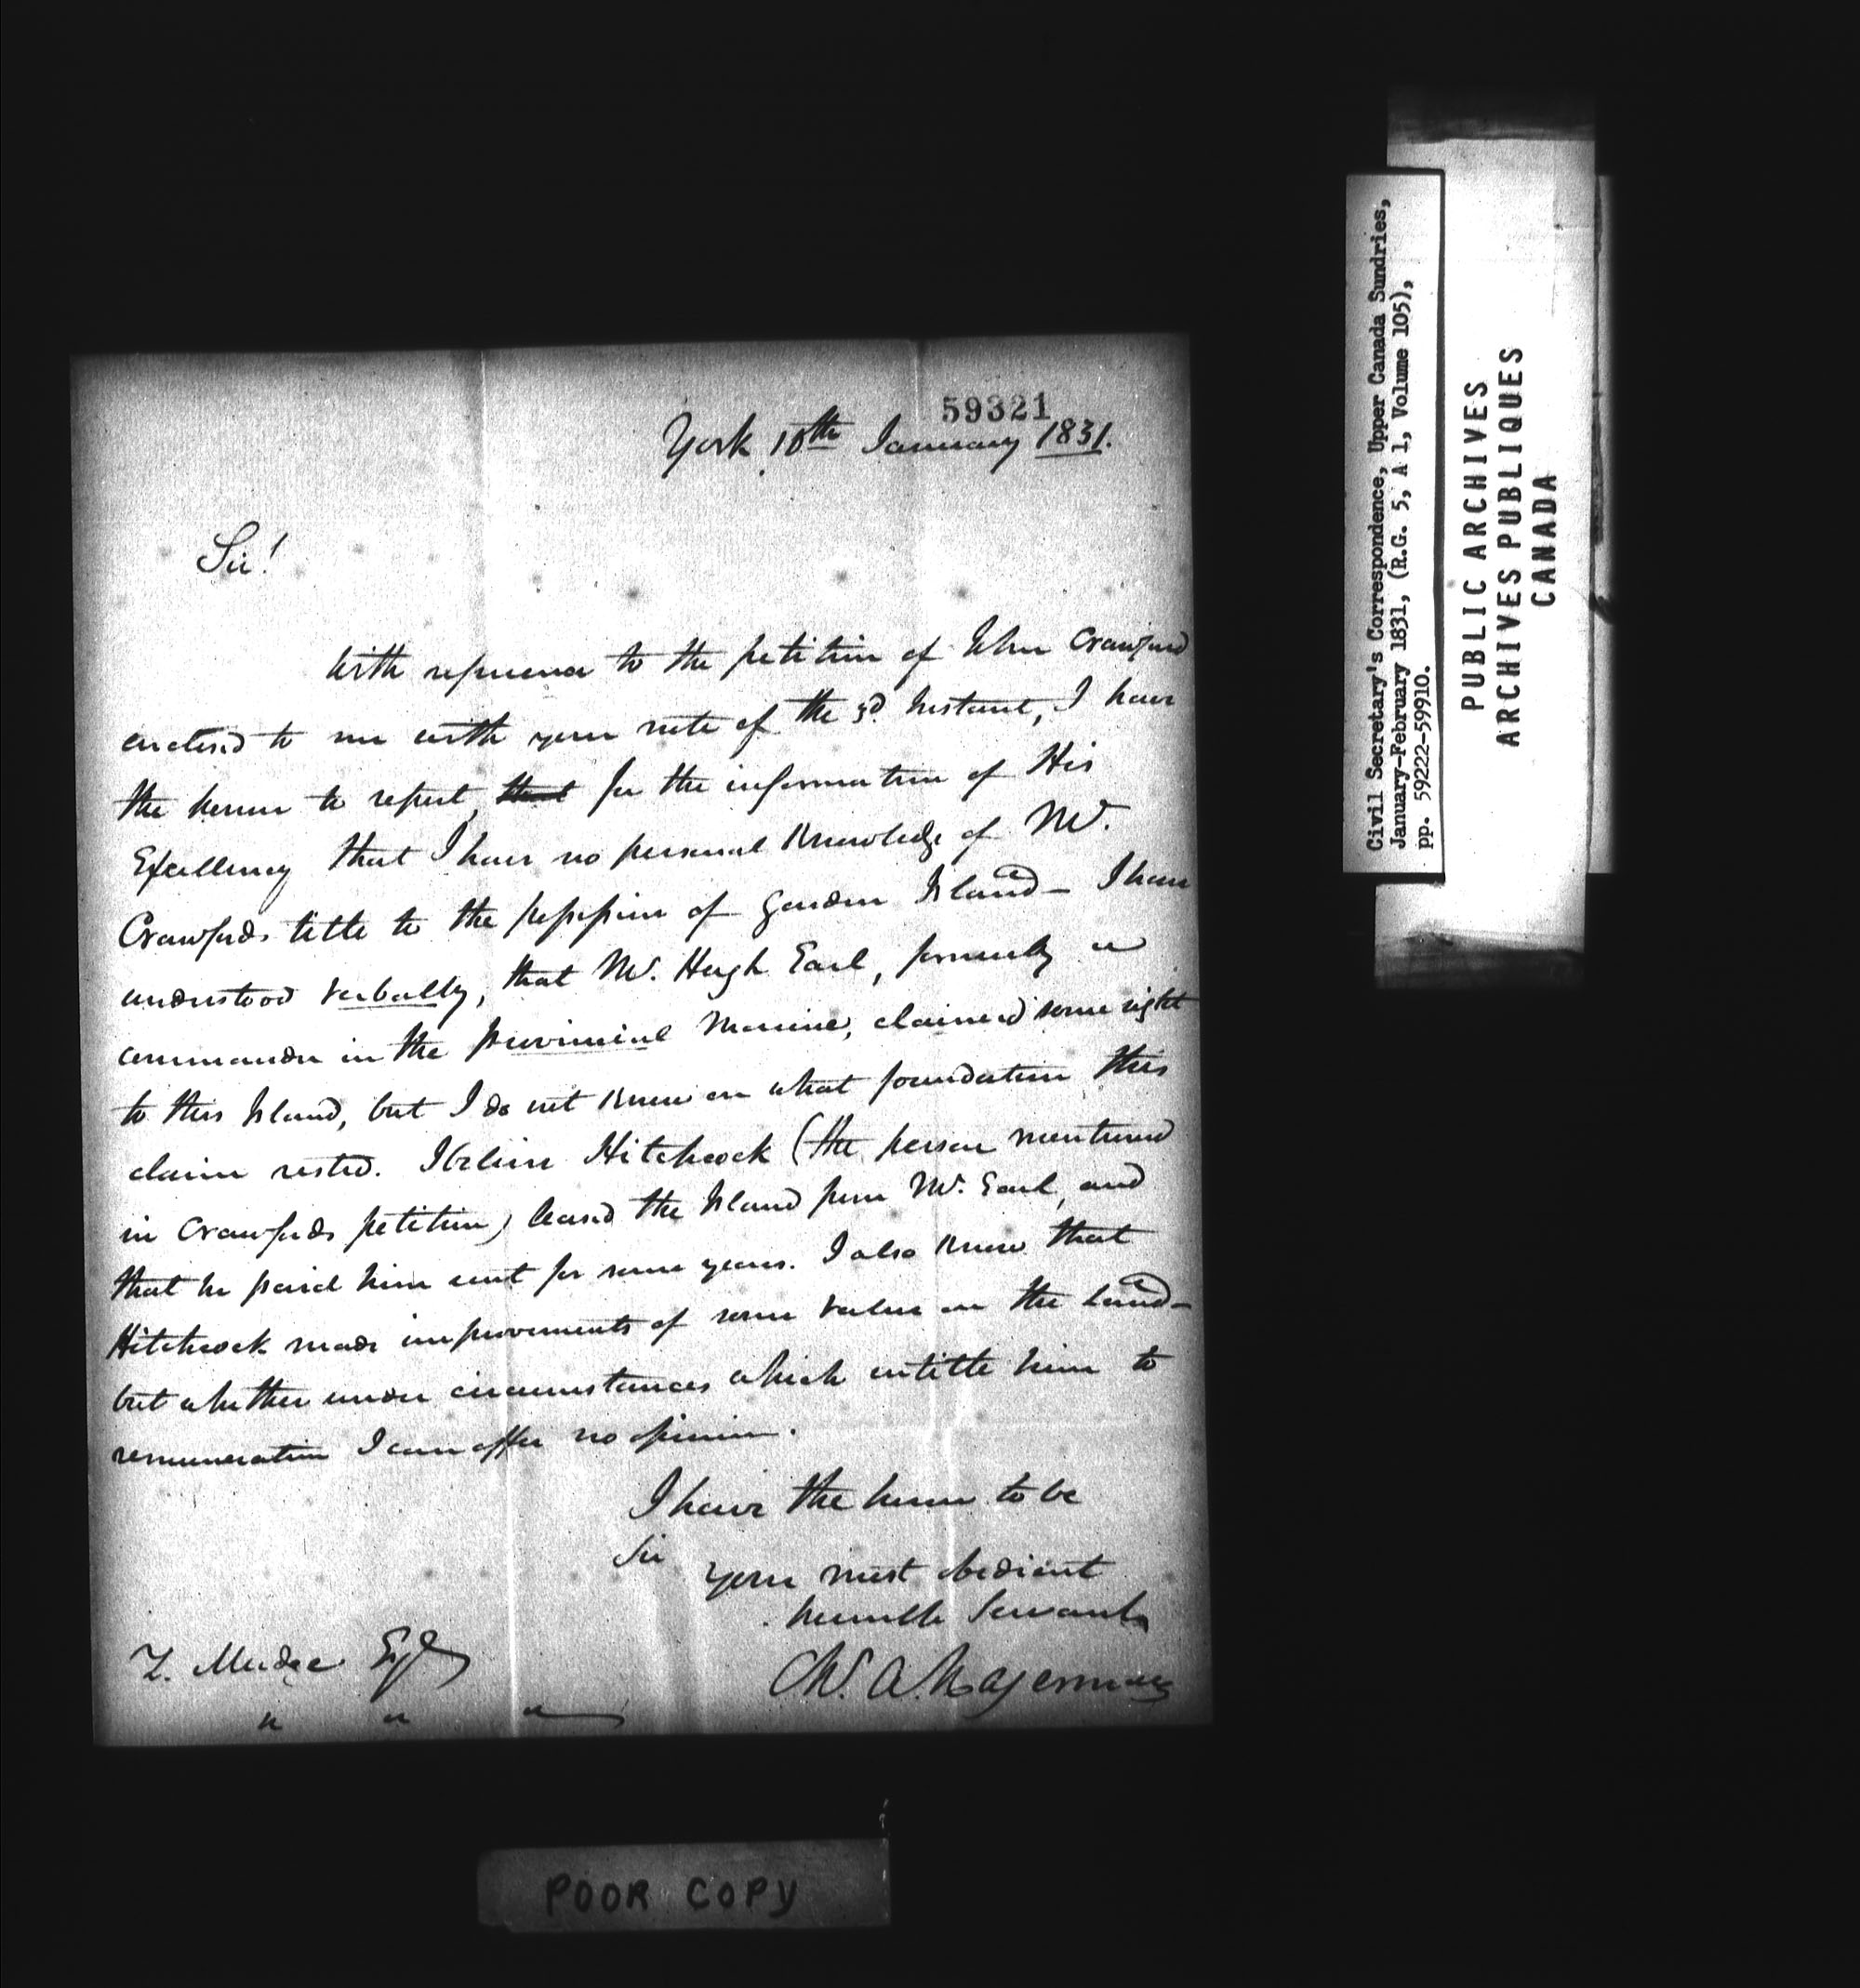 59321
York 10th January 1831.
Sir!
With reference to the petition of John Crawford
enclosed to me with your note of the 3d. Instant, I have
the honor to report, that for the information of His
Excellency that I have no personal Knowledge of Mr.
Crawfords title to the possession of Garden Island – I have
understood verbally, that Mr. Hugh Earl, formerly a
commander in the Provincial Marine, claimed some right
to this Island, but I do not Know on what foundation this
claim rested. I believe Hitchcock (the person mentioned
in Crawfords petition) leased the Island from Mr. Earl, and
that he paid him rent for some years. I also Know that
Hitchcock made improvements of some value on the Land –
but whether under circumstances which entitle him to
remuneration I can offer no opinion.
I have the honor to be
Sir
your most obedient
humble Servant
Ch. A. Hagerman
Z. Mudge Esqr
" " "
POOR COPY
Civil Secretary's Correspondence, Upper Canada Sundries,
January-February 1831, (R.G. 5, A 1, Volume 105),
pp. 59222-59910.
PUBLIC ARCHIVES
ARCHIVES PUBLIQUES
CANADA